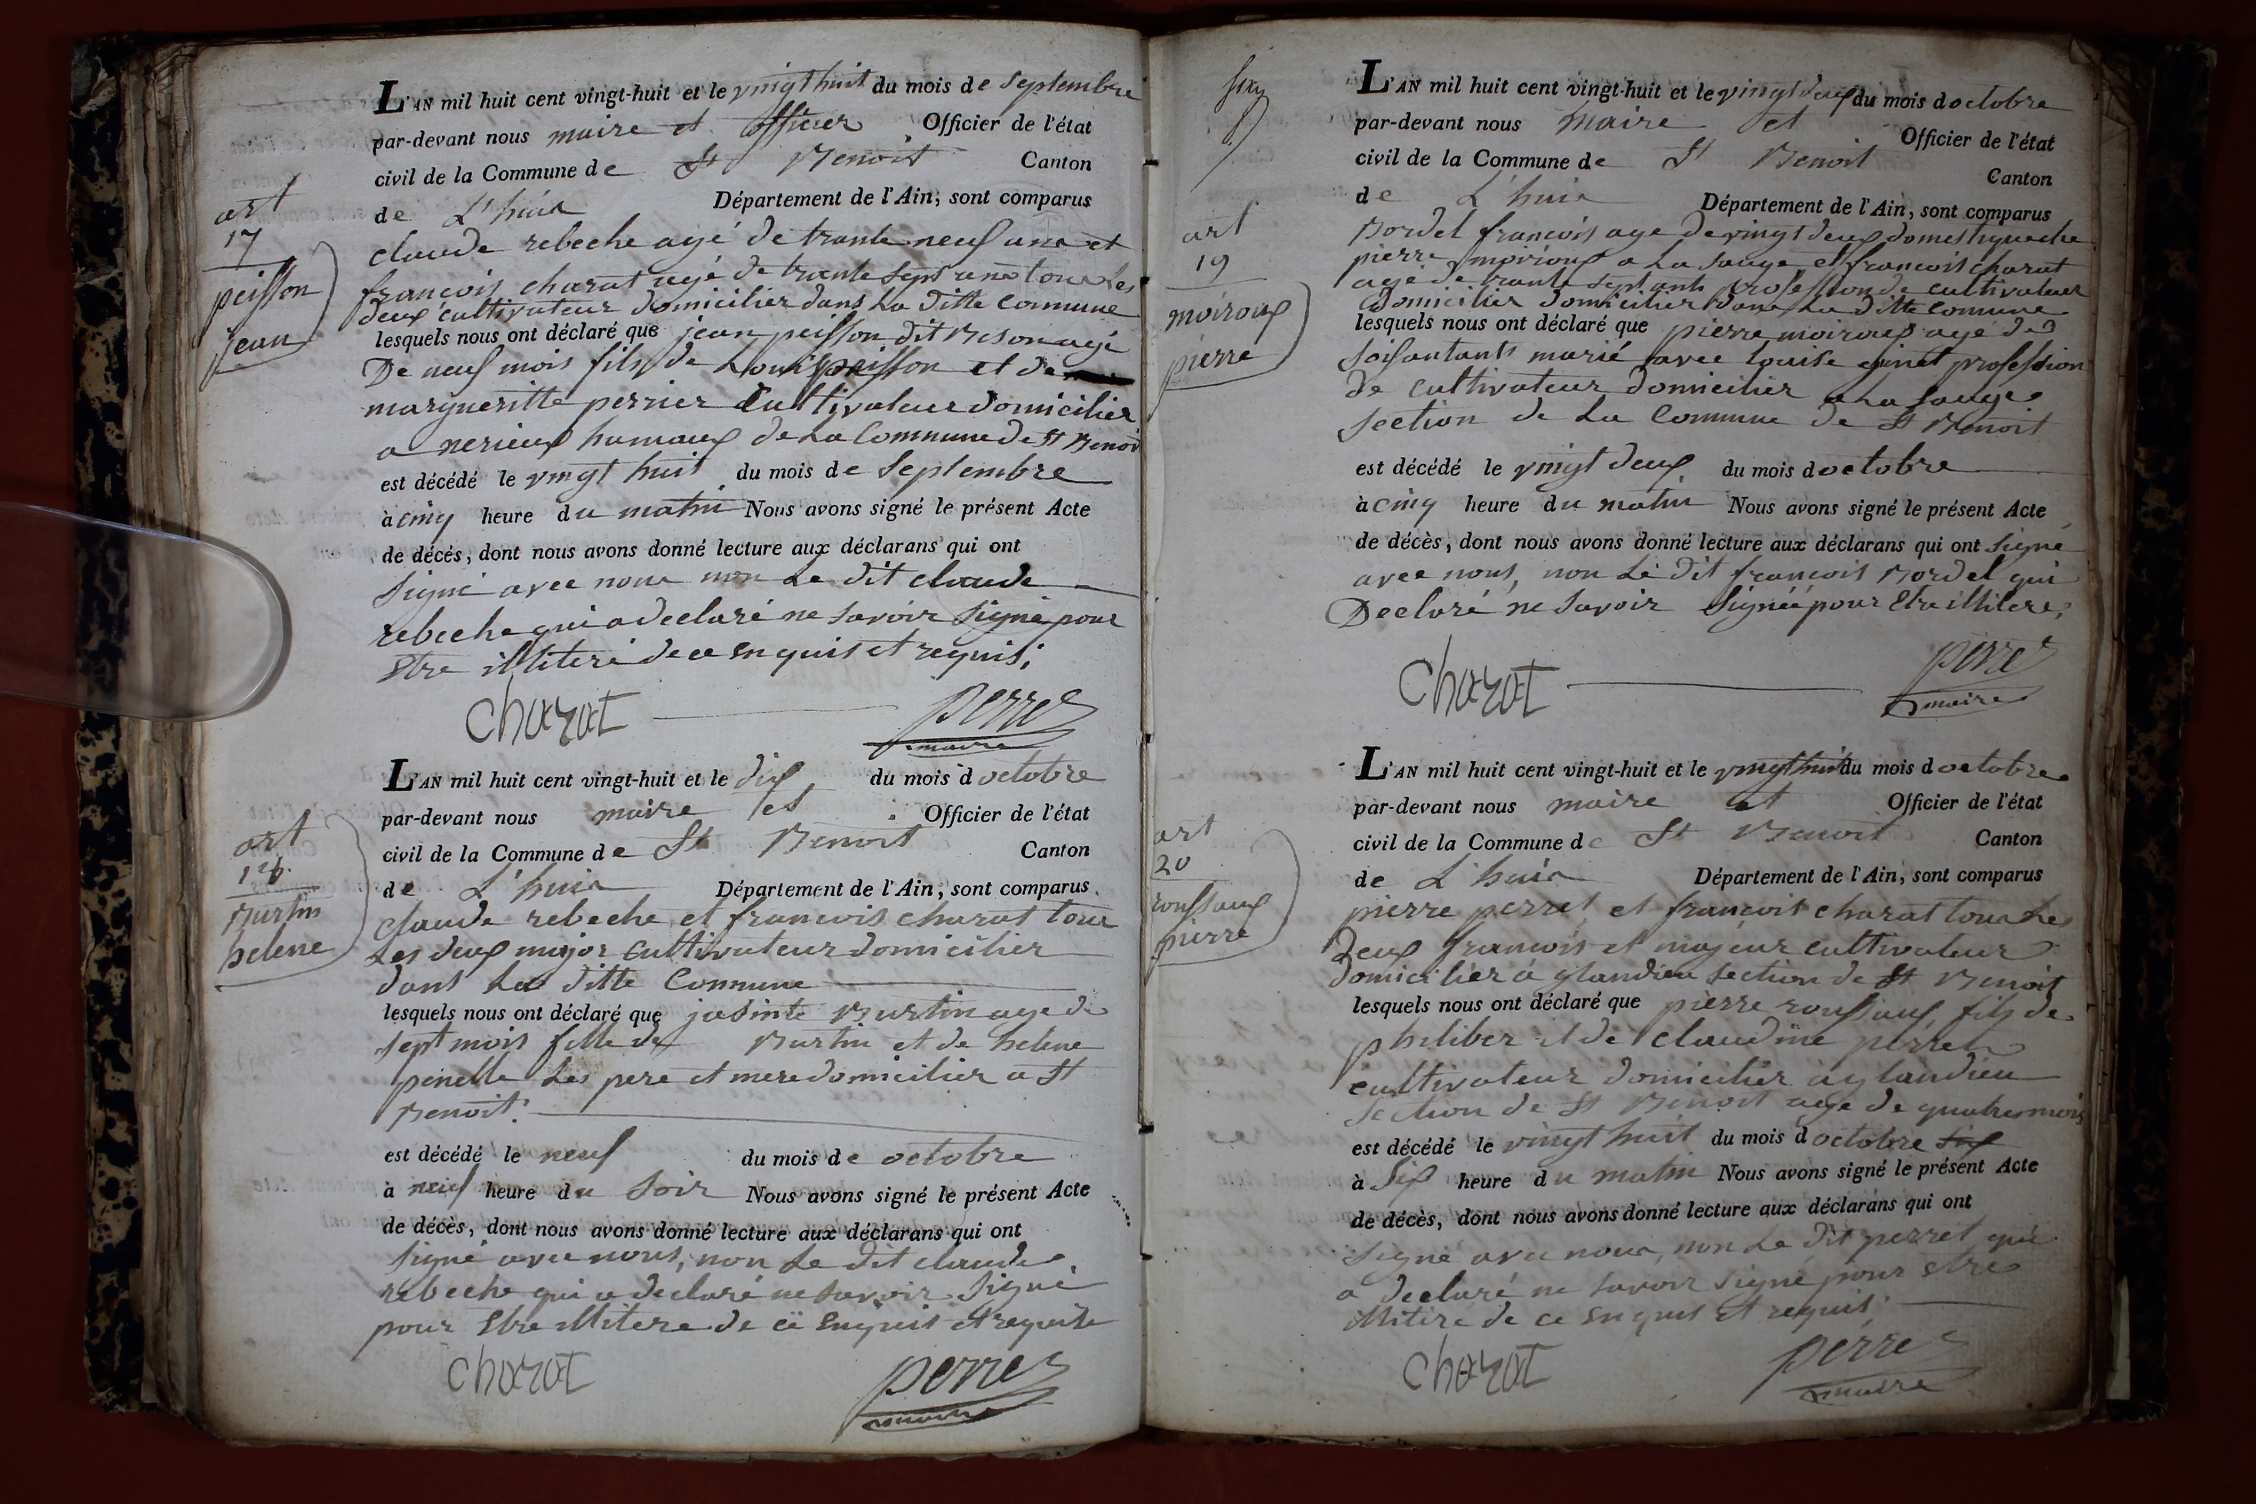 L'AN mil huit cent vingt-huit et le vingt huit du mois de septembre
par-devant nous maire et officier Officier de l'état
civil de la Commune de St Benoit Canton
de L'huis Département de l'Ain; sont comparus
art
17
peisson
jean
claude rebeche agé de trante neuf ans et
francois charat agé de trante sept ans tous les
deux cultivateur domicilier dans la ditte commune
lesquels nous ont déclaré que jean peisson dit Beson agé
De neuf mois fils de Louis peisson et de
margueritte perrier Cultivateur domicilier
a nerieux hamaux de la Commune de St Benoit
est décédé le vingt huit du mois de septembre
à cinq heure du matin Nous avons signé le présent Acte
de décès, dont nous avons donné lecture aux déclarans qui ont
signé avec nous non le dit claude
rebeche qui a declaré ne savoir signé pour
Etre illiteré de ce enquis et requis;
charat perret
maire
L'AN mil huit cent vingt-huit et le dix du mois d octobre
par-devant nous maire et Officier de l'état
civil de la Commune de St Benoit Canton
de L'huis Département de l'Ain; sont comparus
art
18
Burtin
helene
claude rebeche et francois charat tous
les deux major cultivateur domicilier
dans la ditte Commune
lesquels nous ont déclaré que jasinte Burtin age de
sept mois fille de Burtin et de helene
penelle les pere et mere domicilier a St
Benoit.
est décédé le neuf du mois de octobre
à neuf heure du soir Nous avons signé le présent Acte
de décès, dont nous avons donné lecture aux déclarans qui ont
signé avec nous, non le dit claude
rebeche qui a declaré ne savoir signé
pour Etre illitere de ce enquis et requite
charat perret
maire
L'AN mil huit cent vingt-huit et le vingt deux du mois d octobre
par-devant nous maire et Officier de l'état
civil de la Commune de St Benoit Canton
de L'huis Département de l'Ain; sont comparus
art
19
moiroux
pierre
Bordel francois age de vingt deux domestique che
pierre moiroux a la sauge et francois charat
agé de trante sept ans profession de cultivateur
domicilier domicilier dans la ditte Comune
lesquels nous ont déclaré que pierre moiroux agé de
soisantants marié avec louise ginet profession
de cultivateur domicilier a la sauge
section de la Commune de St Benoit
est décédé le vingt deux du mois d octobre
à cinq heure du matin Nous avons signé le présent Acte
de décès, dont nous avons donné lecture aux déclarans qui ont signé
avec nous, non le dit francois Bordel qui
Declaré ne savoir signéé pour Etre illitere;
charat perret
maire
L'AN mil huit cent vingt-huit et le vingt huit du mois d octobre
par-devant nous maire et Officier de l'état
civil de la Commune de St Benoit Canton
de L'huis Département de l'Ain; sont comparus
art
20
roussaux
pierre
pierre perret et francois charat tous les
deux francois et majeur cultivateur
domicilier a glandieu section de St Benoit
lesquels nous ont déclaré que pierre roussaux fils de
philiber et de claudine perret
cultivateur domicilier a glandieu
section de St Benoit age de quatre mois
est décédé le vingt huit du mois d octobre six
à Six heure du matin Nous avons signé le présent Acte
de décès, dont nous avons donné lecture aux déclarans qui ont
signé avec nous, non le dit perret qui
a declaré ne savoir signé pour etre
illitere de ce enquis et requis.
charat perret
maire